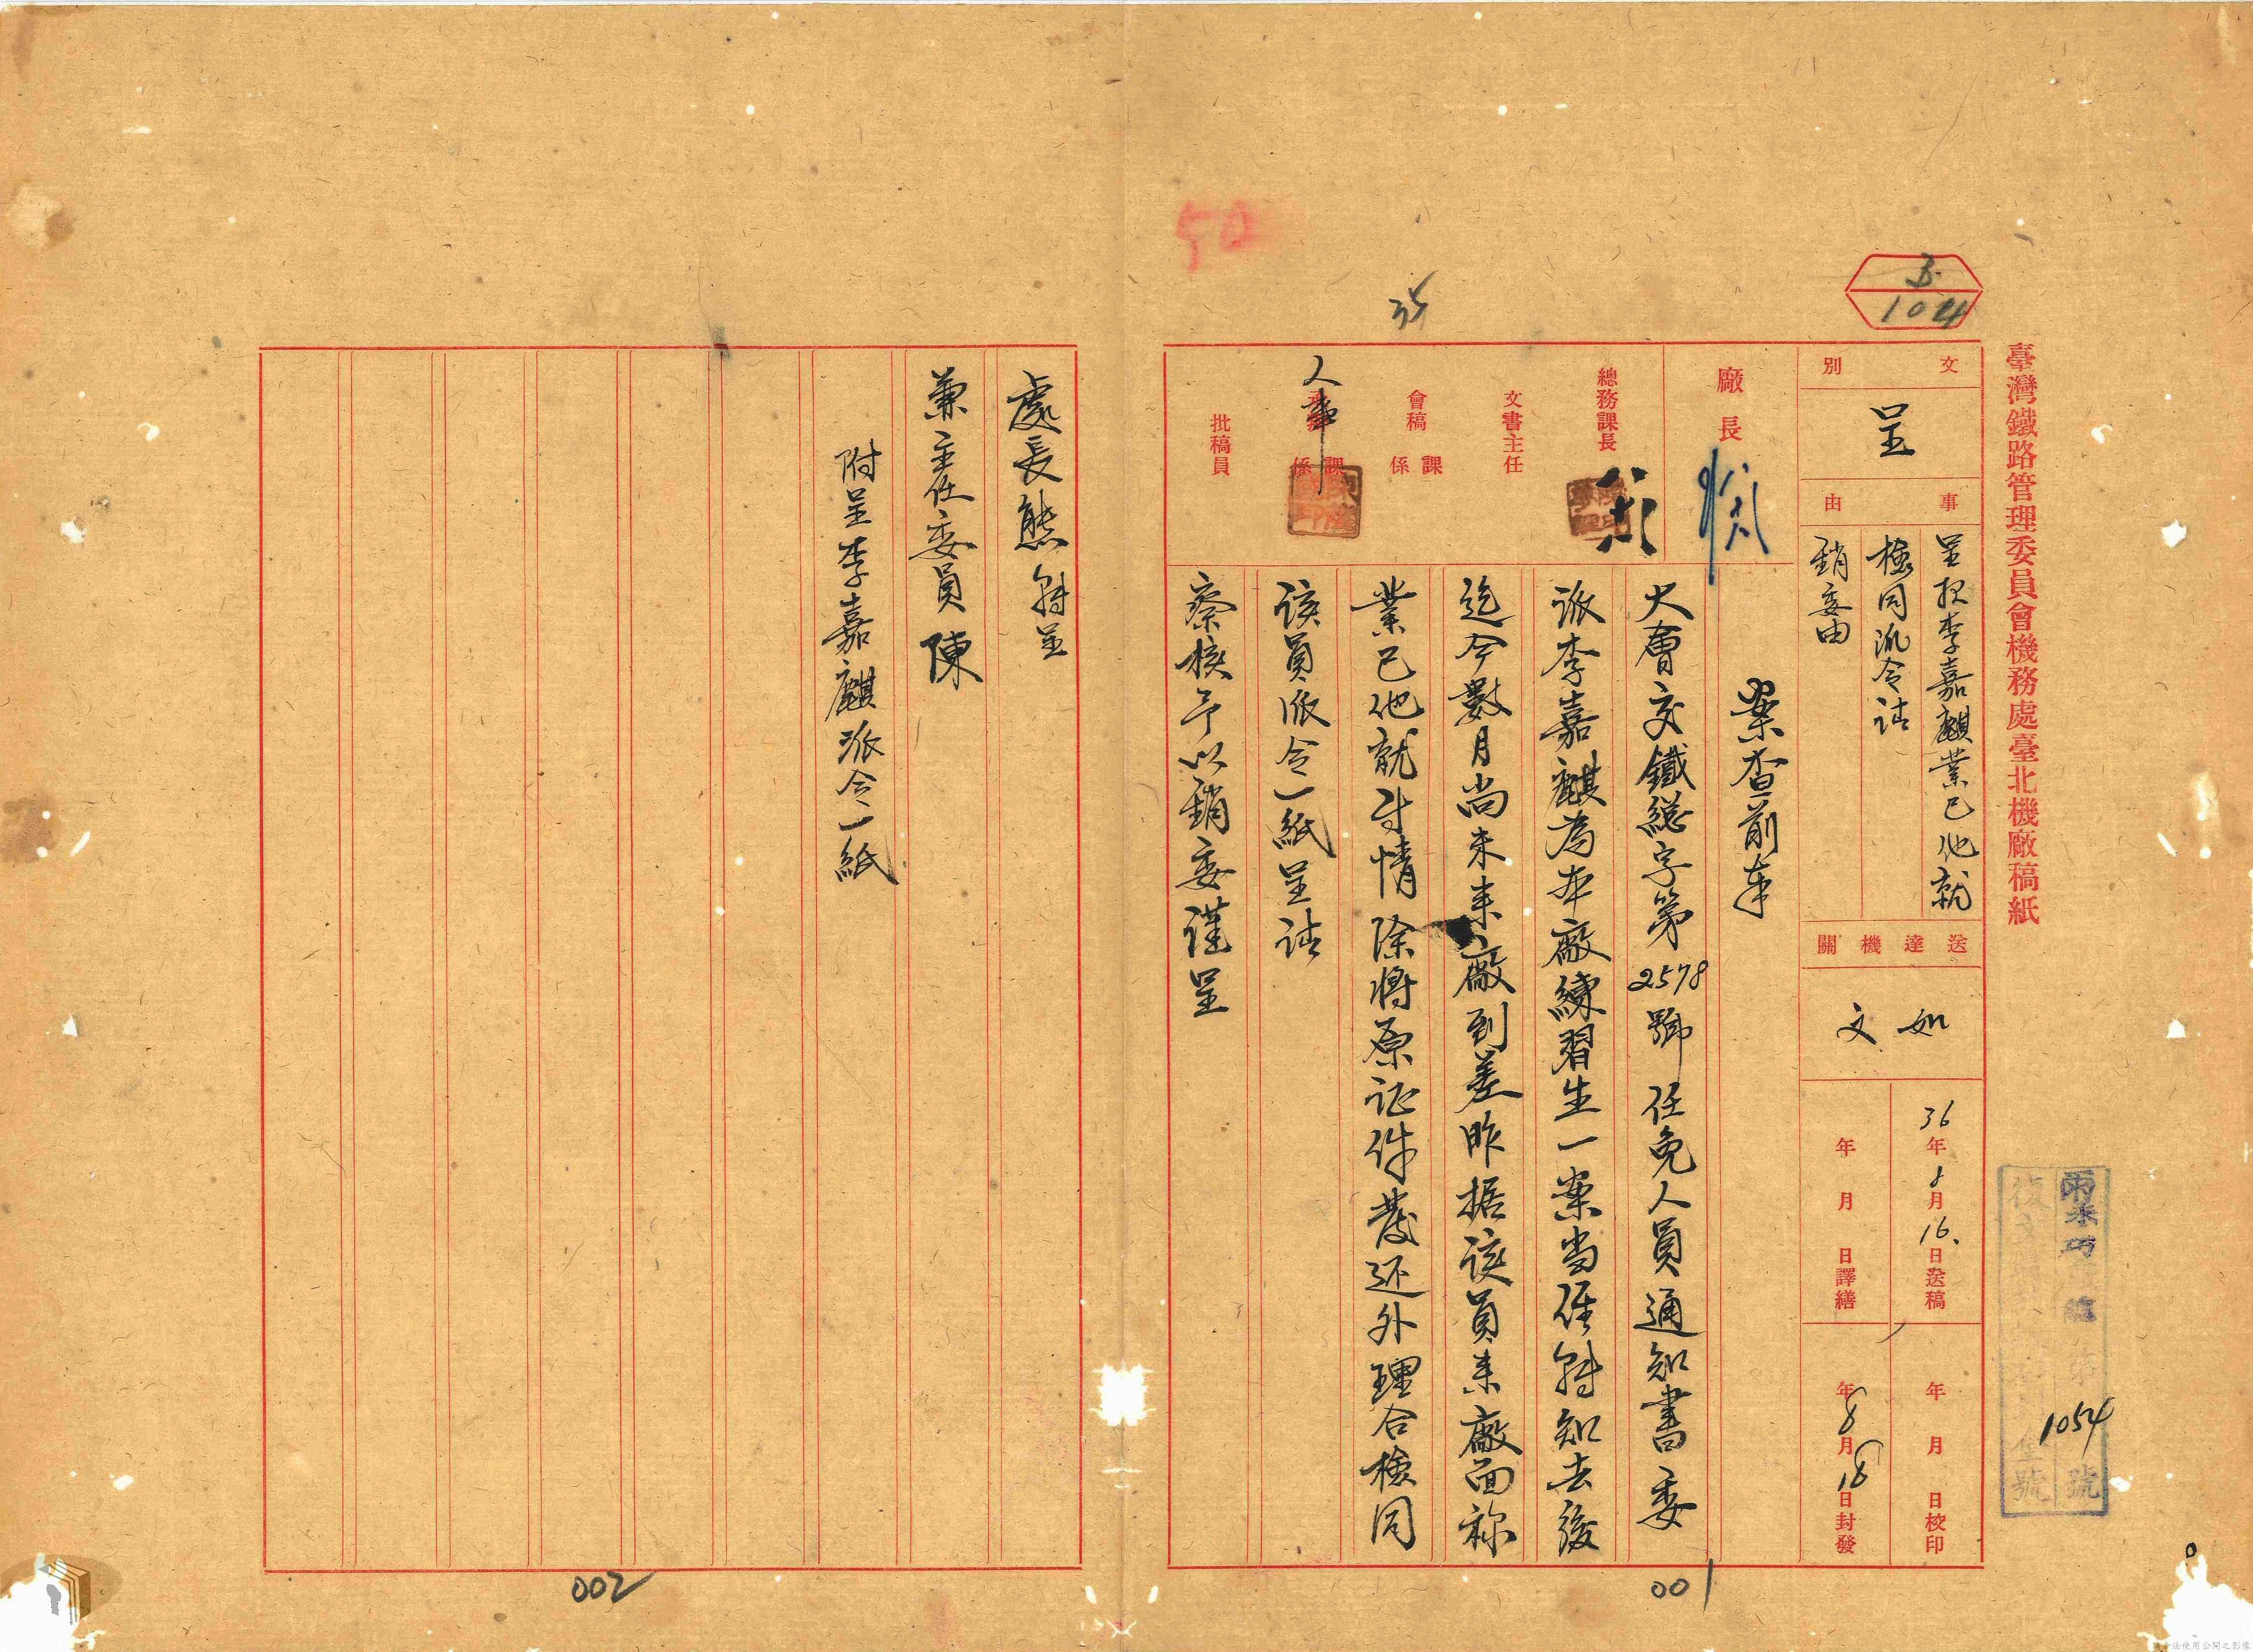 臺灣鐵路管理委員會機務處臺北機廠稿紙
B
104
文別
呈
事由
呈报李嘉麒業已他就
檢同派令請
銷委由
送達機關
如文
36年8月16日送稿
年月日譯繕
年月日校印
年8月18日封發
1054
號
廠長
總務課長
文書主任
會稿
課
係
人事
課
係
批稿員
50
35
案查前奉
大會交鐵總字第2578號任免人員通知書委
派李嘉麒為本廠練習生一案当經轉知去後
迄今數月尚未来廠到差昨据該員来廠面称
業已他就討情除將原证件發还外理合檢同
該員派令一紙呈請
察核予以銷委謹呈
001
處長熊轉呈
兼主任委員陳
附呈李嘉麒派令一紙
002